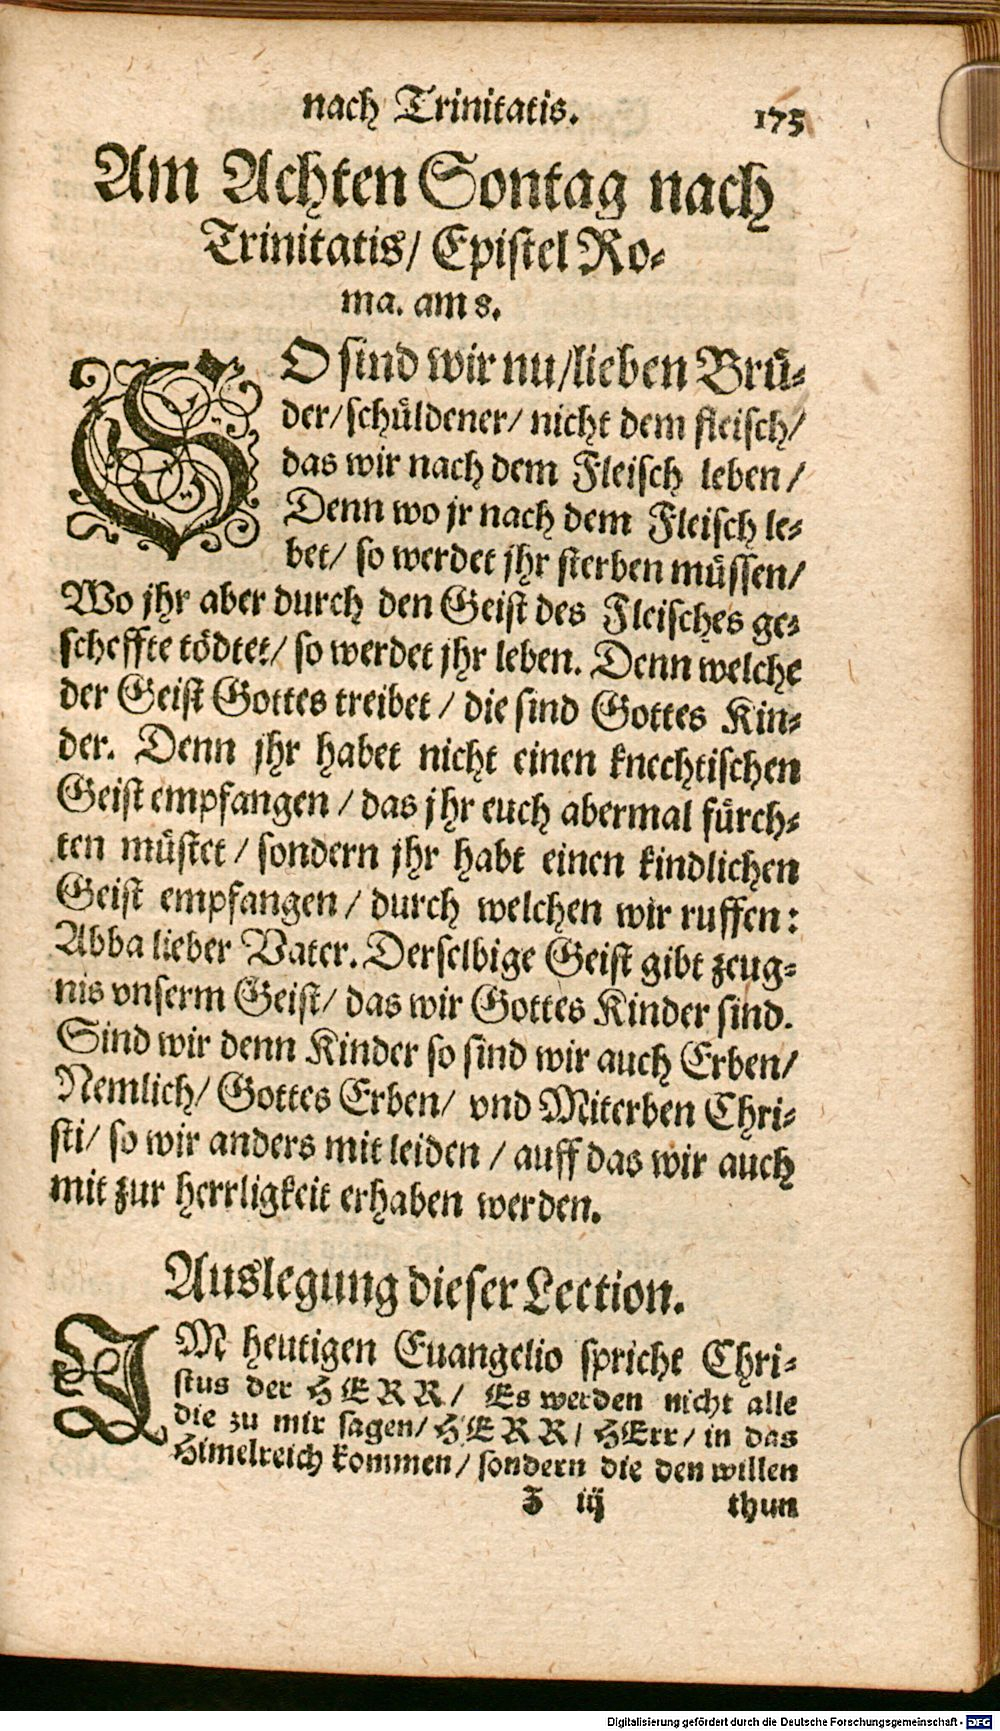 nach Trinitatis. 175
Am Achten Sontag nach
Trinitatis/ Epistel Ro-
ma. am 8.
SO sind wir nu/lieben Brü-
der/schüldener/ nicht dem fleisch/
das wir nach dem Fleisch leben/
Denn wo jr nach dem Fleisch le-
bet/ so werdet jhr sterben müssen/
Wo jhr aber durch den Geist des Fleisches ge-
scheffte tödtet/ so werdet jhr leben. Denn welche
der Geist Gottes treibet/ die sind Gottes Kin-
der. Denn jhr habet nicht einen knechtischen
Geist empfangen/ das jhr euch abermal fürch-
ten müstet/ sondern jhr habt einen kindlichen
Geist empfangen/ durch welchen wir ruffen:
Abba lieber Vater. Derselbige Geist gibt zeug-
nis vnserm Geist/ das wir Gottes Kinder sind.
Sind wir denn Kinder so sind wir auch Erben/
Nemlich/ Gottes Erben/ vnd Miterben Chri-
sti/ so wir anders mit leiden/ auff das wir auch
mit zur herrligkeit erhaben werden.
Auslegung dieser Lection.
IM heutigen Euangelio spricht Chri-
stus der HERR/ Es werden nicht alle
die zu mir sagen/ HERR/ HErr/ in das
Himelreich kommen/ sondern die den willen
Z iij thun
Digitalisierung gefördert durch die Deutsche Forschungsgemeinschaft - DFG